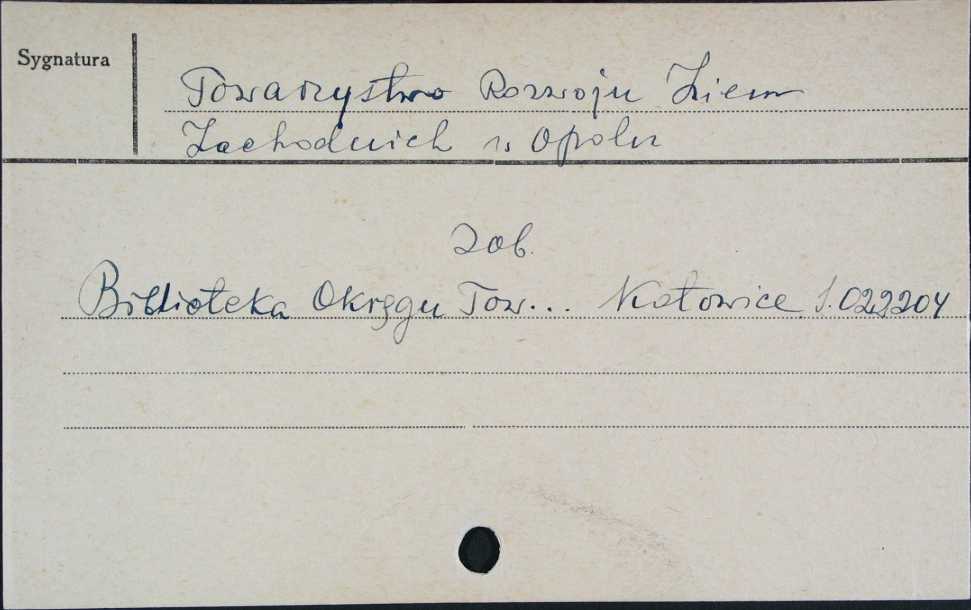 Sygnatura
Towarzystwo Rozwoju Ziem
Zachodnich w Opolu
Zob.
Biblioteka Okręgu Tow... Katowice S. 023204